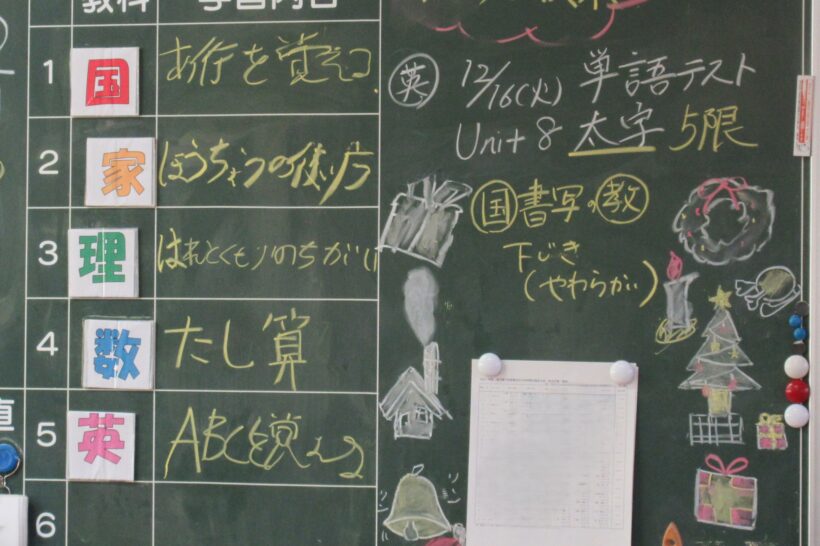 教科 学習内容
1 国 あ行を覚える
2 家 ほうちょうの使い方
3 理 はれとくもりのちがい
4 数 たし算
5 英 ABCを覚える
6
英 12/16(火) 単語テスト
Unit 8 太字 5限
国書写の教
下じき
(やわらかい)
リン
リン